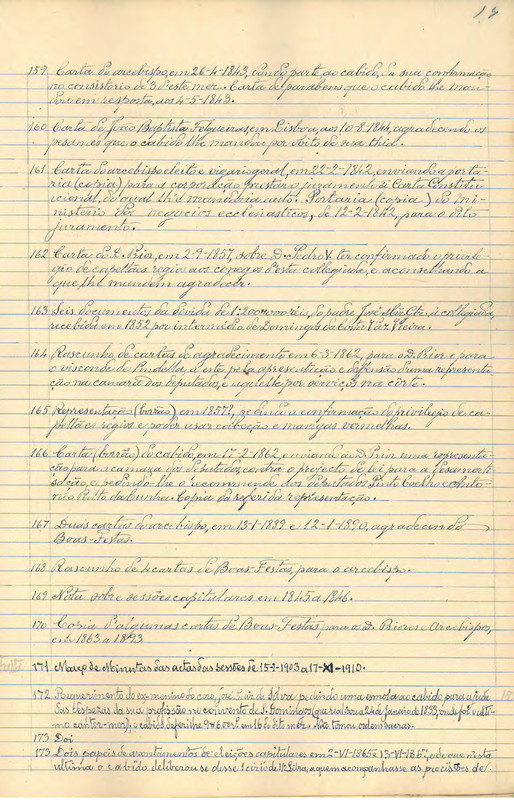 159 Carta do arcebispo, em 26-4-1843, dando parte ao cabido, da sua confirmação
no consistorio de 3 d'este mez. Carta de parabens que o cabido lhe man-
dou em resposta, aos 4-5-1843.
160 Carta de João Baptista Felgueiras, em Lisboa, aos 10-8-1844, agradecendo os
pesames que o cabido lhe mandou por obito de sua thia.
161 Carta do arcebispo eleito e vigario geral, em 22-2-1842, enviando a porta-
ria (copia) para a corporação prestar o juramento á Carta Constitu-
cional, do qual lh'd mandaria auto. Portaria (copia) do mi-
nisterio dos negocios ecclesiasticos, de 12-2-1842, para o dito
juramento.
162 Carta do D. Prior, em 2-9-1857, sobre D. Pedro V ter confirmado o privile-
gio de capellães regios aos conegos d'esta collegiada, e aconselhando a
que lhe mandem agradecer.
163 Seis documentos da divida de 1:200$000 reis, do padre José á collegiada,
recebida em 1852 por intermedio de Domingos da Costa Vaz Vieira.
164 Rascunho de cartas de agradecimento em 6-3-1862, para o D. Prior e para
o visconde de Pindella, a este pela apresentação e defensão d'uma representa-
ção na camara dos deputados, e aquelle por serviços na côrte.
165 Representação (borrão) em 1857, pedindo a confirmação do privilegio de ca-
pellães regios e poder usar cabeção e mangas vermelhas.
166 Carta (borrão) do cabido, em 17-2-1862, enviando ao D. Prior uma representa-
ção para a camara dos deputados, contra o projecto de lei para a desamorti-
sação, e pedindo-lhe o recommende aos deputados Pinto Coelho e Anto-
nio Pinto da Cunha. Copia da referida representação.
167 Duas cartas do arcebispo, em 15-1-1889 e 12-1-1890, agradecendo
Boas-Festas.
168 Rascunho de 4 cartas de Boas-Festas, para o arcebispo.
169 Nota sobre sessões capitulares em 1845 a 1846.
170 Copia d'algumas cartas de Boas-Festas para os D. Priores e Arcebispos,
entre 1863 a 1893
171 Maço de Minutas das actas das sessões de 1903 a 17-XI-1910.
172 Requerimento do ex-menino do coro, José Luiz da Silva pedindo uma esmola ao cabido para ajuda
das despezas da sua profissão no convento de S. Domingos (que realisou a 24 de janeiro de 1833, onde foi o ulti-
mo cantor-mor), o cabido deferiu em 16 do dito mez. Não tomou ordens sacras.
173 Doi
173 Dois papeis de apontamentos de eleições capitulares em 2-VI-1865 e 13-VI-1867, e de que n'esta
ultima o cabido deliberou se désse 1 cirio de 1/2 libra, a quem acompanhasse as procissões de